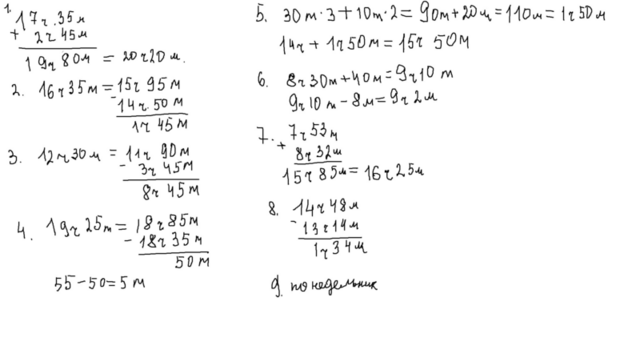 1.
17ч 35м
+ 2ч 45м
19ч 80м = 20ч 20м.
2. 16ч 35м = 15ч 95м
- 14ч 50м
1ч 45м
3. 12ч 30м = 11ч 90м
- 3ч 45м
8ч 45м
4. 19ч 25м = 18ч 85м
- 18ч 35м
50м
55-50=5м
5. 30м·3+10м·2=90м+20м=110м=1ч50м
14ч+1ч50м=15ч 50м
6. 8ч30м+40м=9ч10м
9ч10м-8м=9ч2м
7. 7ч53м
+ 8ч32м
15ч 85м=16ч25м
8. 14ч48м
- 13ч14м
1ч34м
9. понедельник